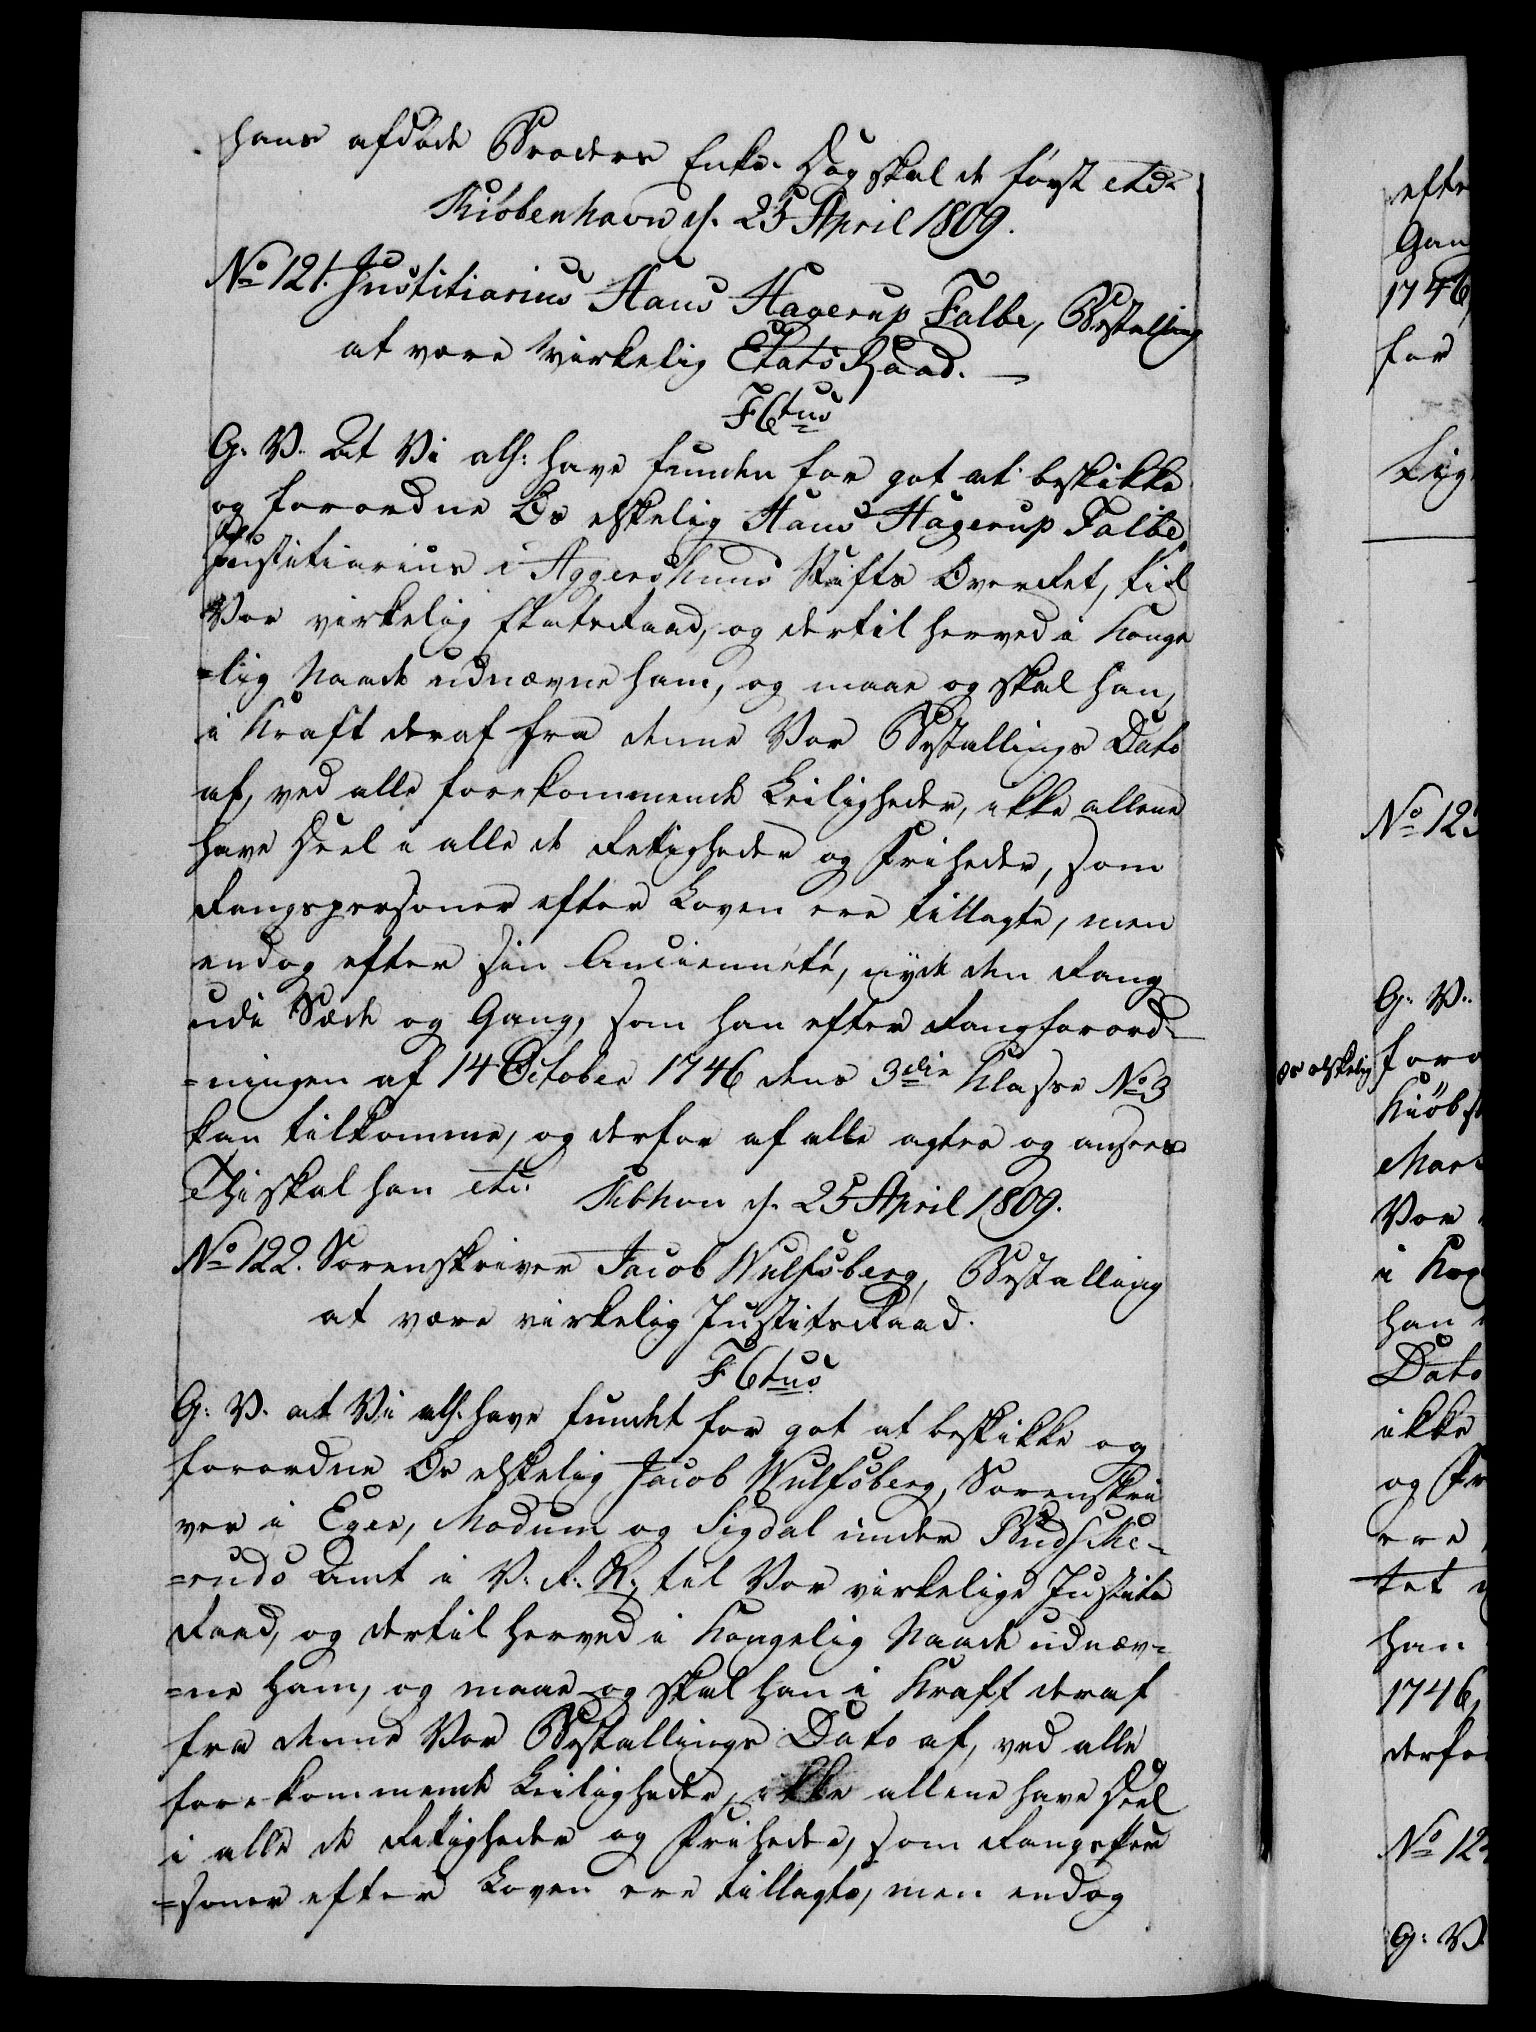 hans afdøde Broders Enke. Dog skal de først etc.
Kiøbenhavn d. 25 April 1809.
No 121. Justitiarius Hans Hagerup Falbe, Bestalling
at være virkelig EtatsRaad. —
F 6tus
G. V. At Vi alh: have funden for got at beskikke
og forordne Os elskelig Hans Hagerup Falbe,
Justitiarius i Aggershuus Stifts OverRet, til
Vor virkelig EtatsRaad, og dertil herved i Konge
=lig Naade udnævne ham, og maae og skal han,
i Kraft deraf fra denne Vor Bestallings Dato
af, ved alle forekommende Leiligheder, ikke allene
have Deel i alle de Rettigheder og Friheder, som
Rangspersoner efter Loven ere tillagte, men
endog efter sin Ancienneté, nyde den Rang
udi Sæde og Gang, som han efter Rangforord-
=ningen af 14 October 1746 dens 3die Klasse No 3
kan tilkomme, og derfor af alle agtes og ansees.
Thi skal han etc: Kbhvn d. 25 April 1809.
No 122. Sorenskriver Jacob Wulfsberg, Bestalling
at være virkelig JustitsRaad.
F 6tus
G: V. at Vi alh. have fundet for got at beskikke og
forordne Os elskelig Jacob Wulfsberg, Sorenskri
ver i Eger, Modum og Sigdal under Budske-
=ruds Amt i V: R: N:, til Vor virkelige Justits
Raad, og dertil herved i Kongelig Naade udnæv-
=ne ham, og maae og skal han i Kraft deraf
fra denne Vor Bestallings Dato af, ved alle
forekommende Leiligheder, ikke allene have Deel
i alle de Rettigheder og Friheder, som Rangsper
=soner efter Loven ere tillagte, men endog
efte
Gan
1746,
for
No 123
G: V:
Os elskelig
foro
Kiøbst
Mar
Vor
i Kog
han
Dato
ikke
og Fr
ere
tet
han
1746,
derfor
No 124
G: V.